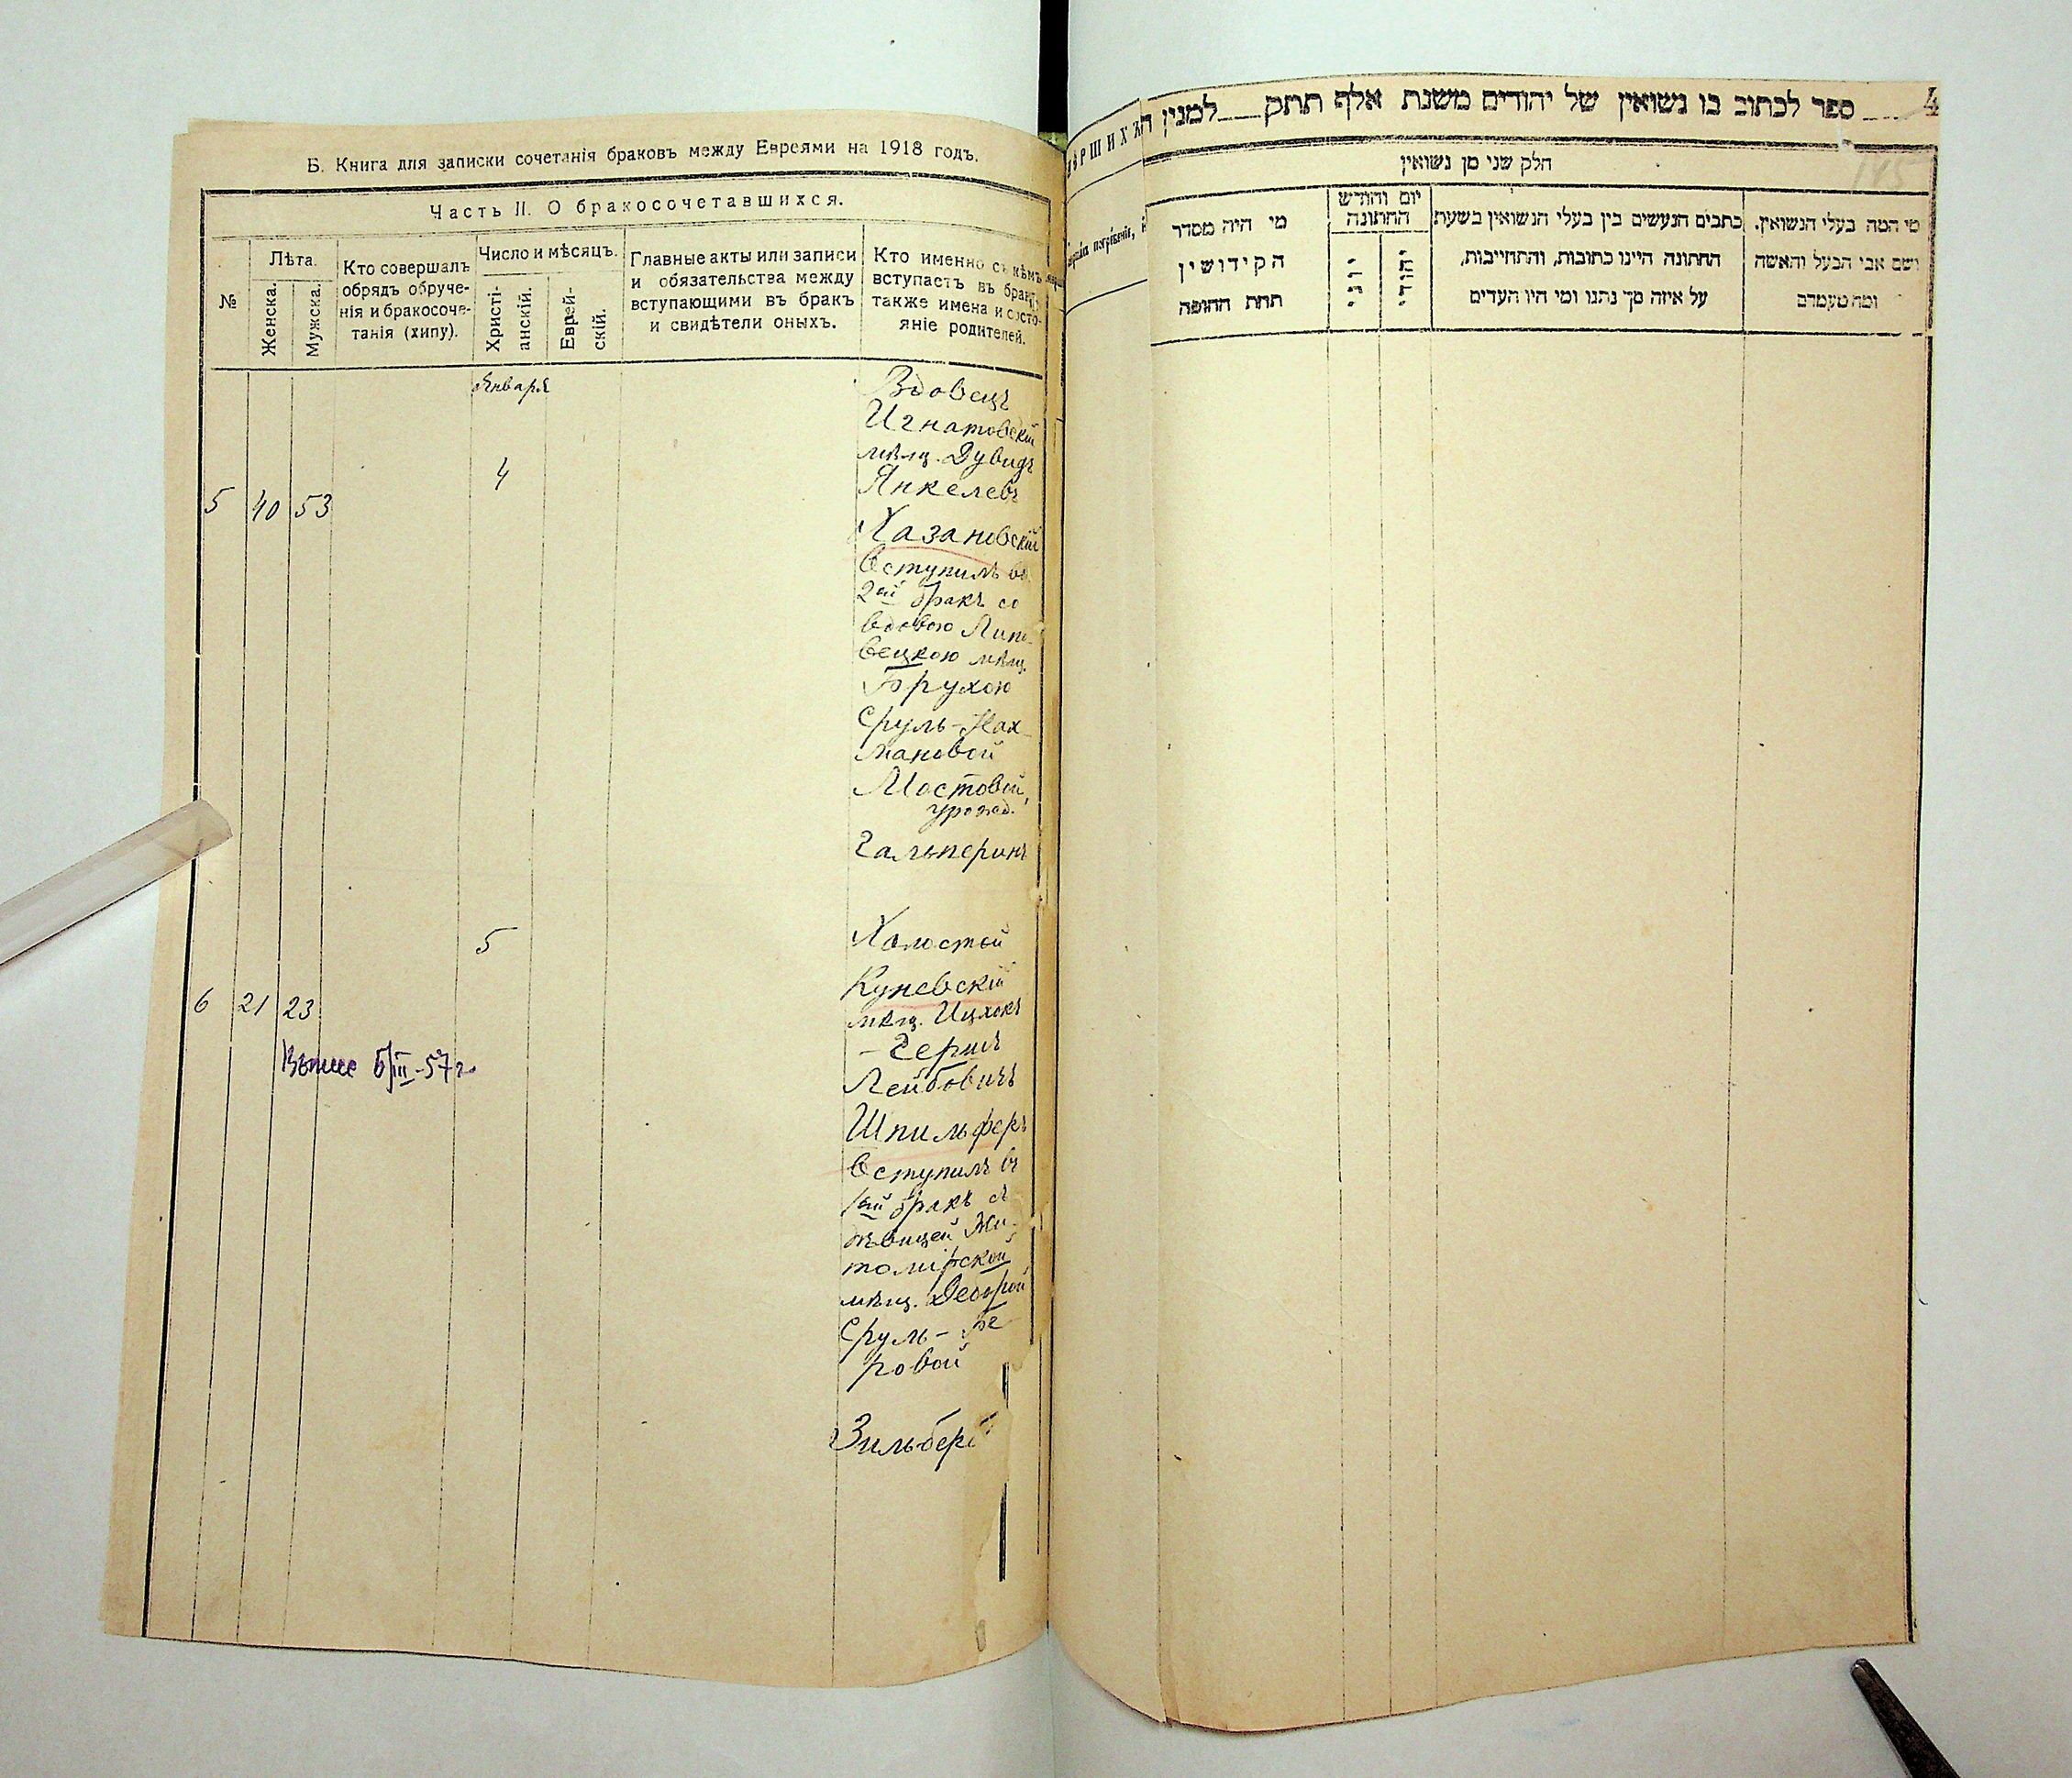 Б. Книга для записки сочетанія браковъ между Евреями на 1918 годъ.
Часть II. О бракосочетавшихся.
№
Лѣта.
Женска.
Мужска.
Кто совершалъ
обрядъ обруче-
нія и бракосоче-
танія (хипу).
Число и мѣсяцъ.
Христі-
анскій.
Еврей-
скій.
Главные акты или записи
и обязательства между
вступающими въ бракъ
и свидѣтели оныхъ.
Кто именно съ кѣмъ
вступаетъ въ бракъ,
также имена и состо-
яніе родителей.
Января
5 40 53
4
Вдовецъ
Игнатовскій
мѣщ. Дувидъ
Янкелевъ
Хазановскій
вступилъ во
2ой бракъ со
вдовою Липо-
вецкою мѣщ.
Брухою
Сруль-Нах-
мановой
Мостовой,
урожд.
Гальперинъ
6 21 23
5
Холостой
Куневскій
мѣщ. Ицхокъ
-Гершъ
Лейбовичъ
Шпильферъ
вступилъ въ
1ый бракъ съ
дѣвицей Жи-
томірской
мѣщ. Деборой
Сруль-Бе-
ровой
Зильбер
5/III-57 г.
ספר לכתוב בו נשואין של יהודים משנת אלף תתק למנין ה
4
145
חלק שני מן נשואין
מי המה בעלי הנשואין.
ושם אבי הבעל והאשה
ומה מעמדם
כתבים הנעשים בין בעלי הנשואין בשעת
החתונה היינו כתובות, והתחייבות,
על איזה סך נתנו ומי היו העדים
יום והודש
החתונה
יהודי
יוני
מי היה מסדר
הקידושין
תחת החופה